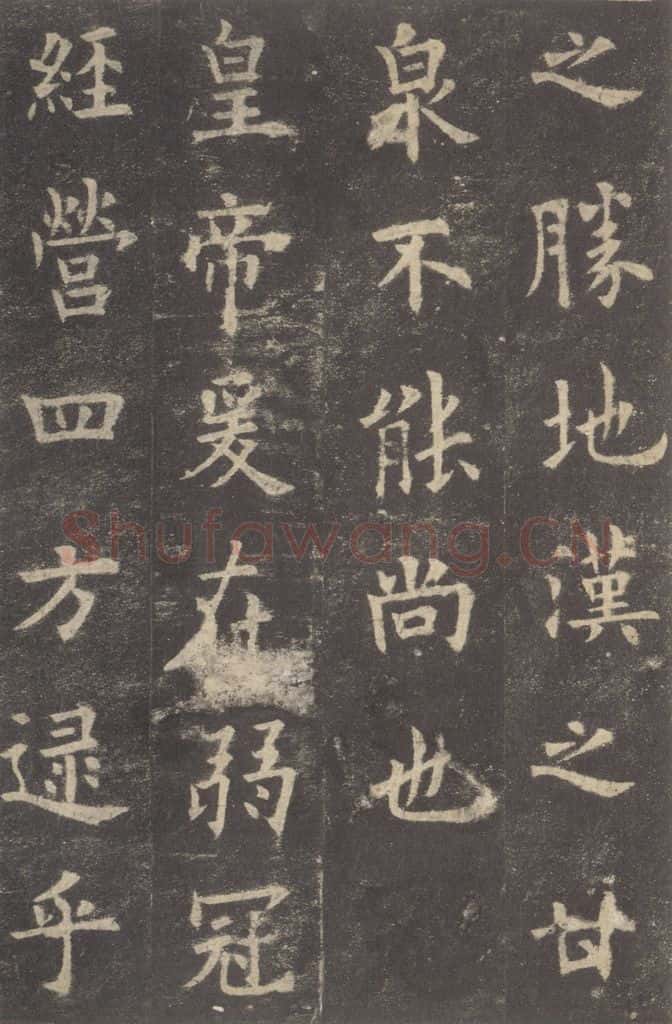 之勝地漢之甘
泉不能尚也
皇帝爰在弱冠
經營四方逮乎
Shufawang.CN